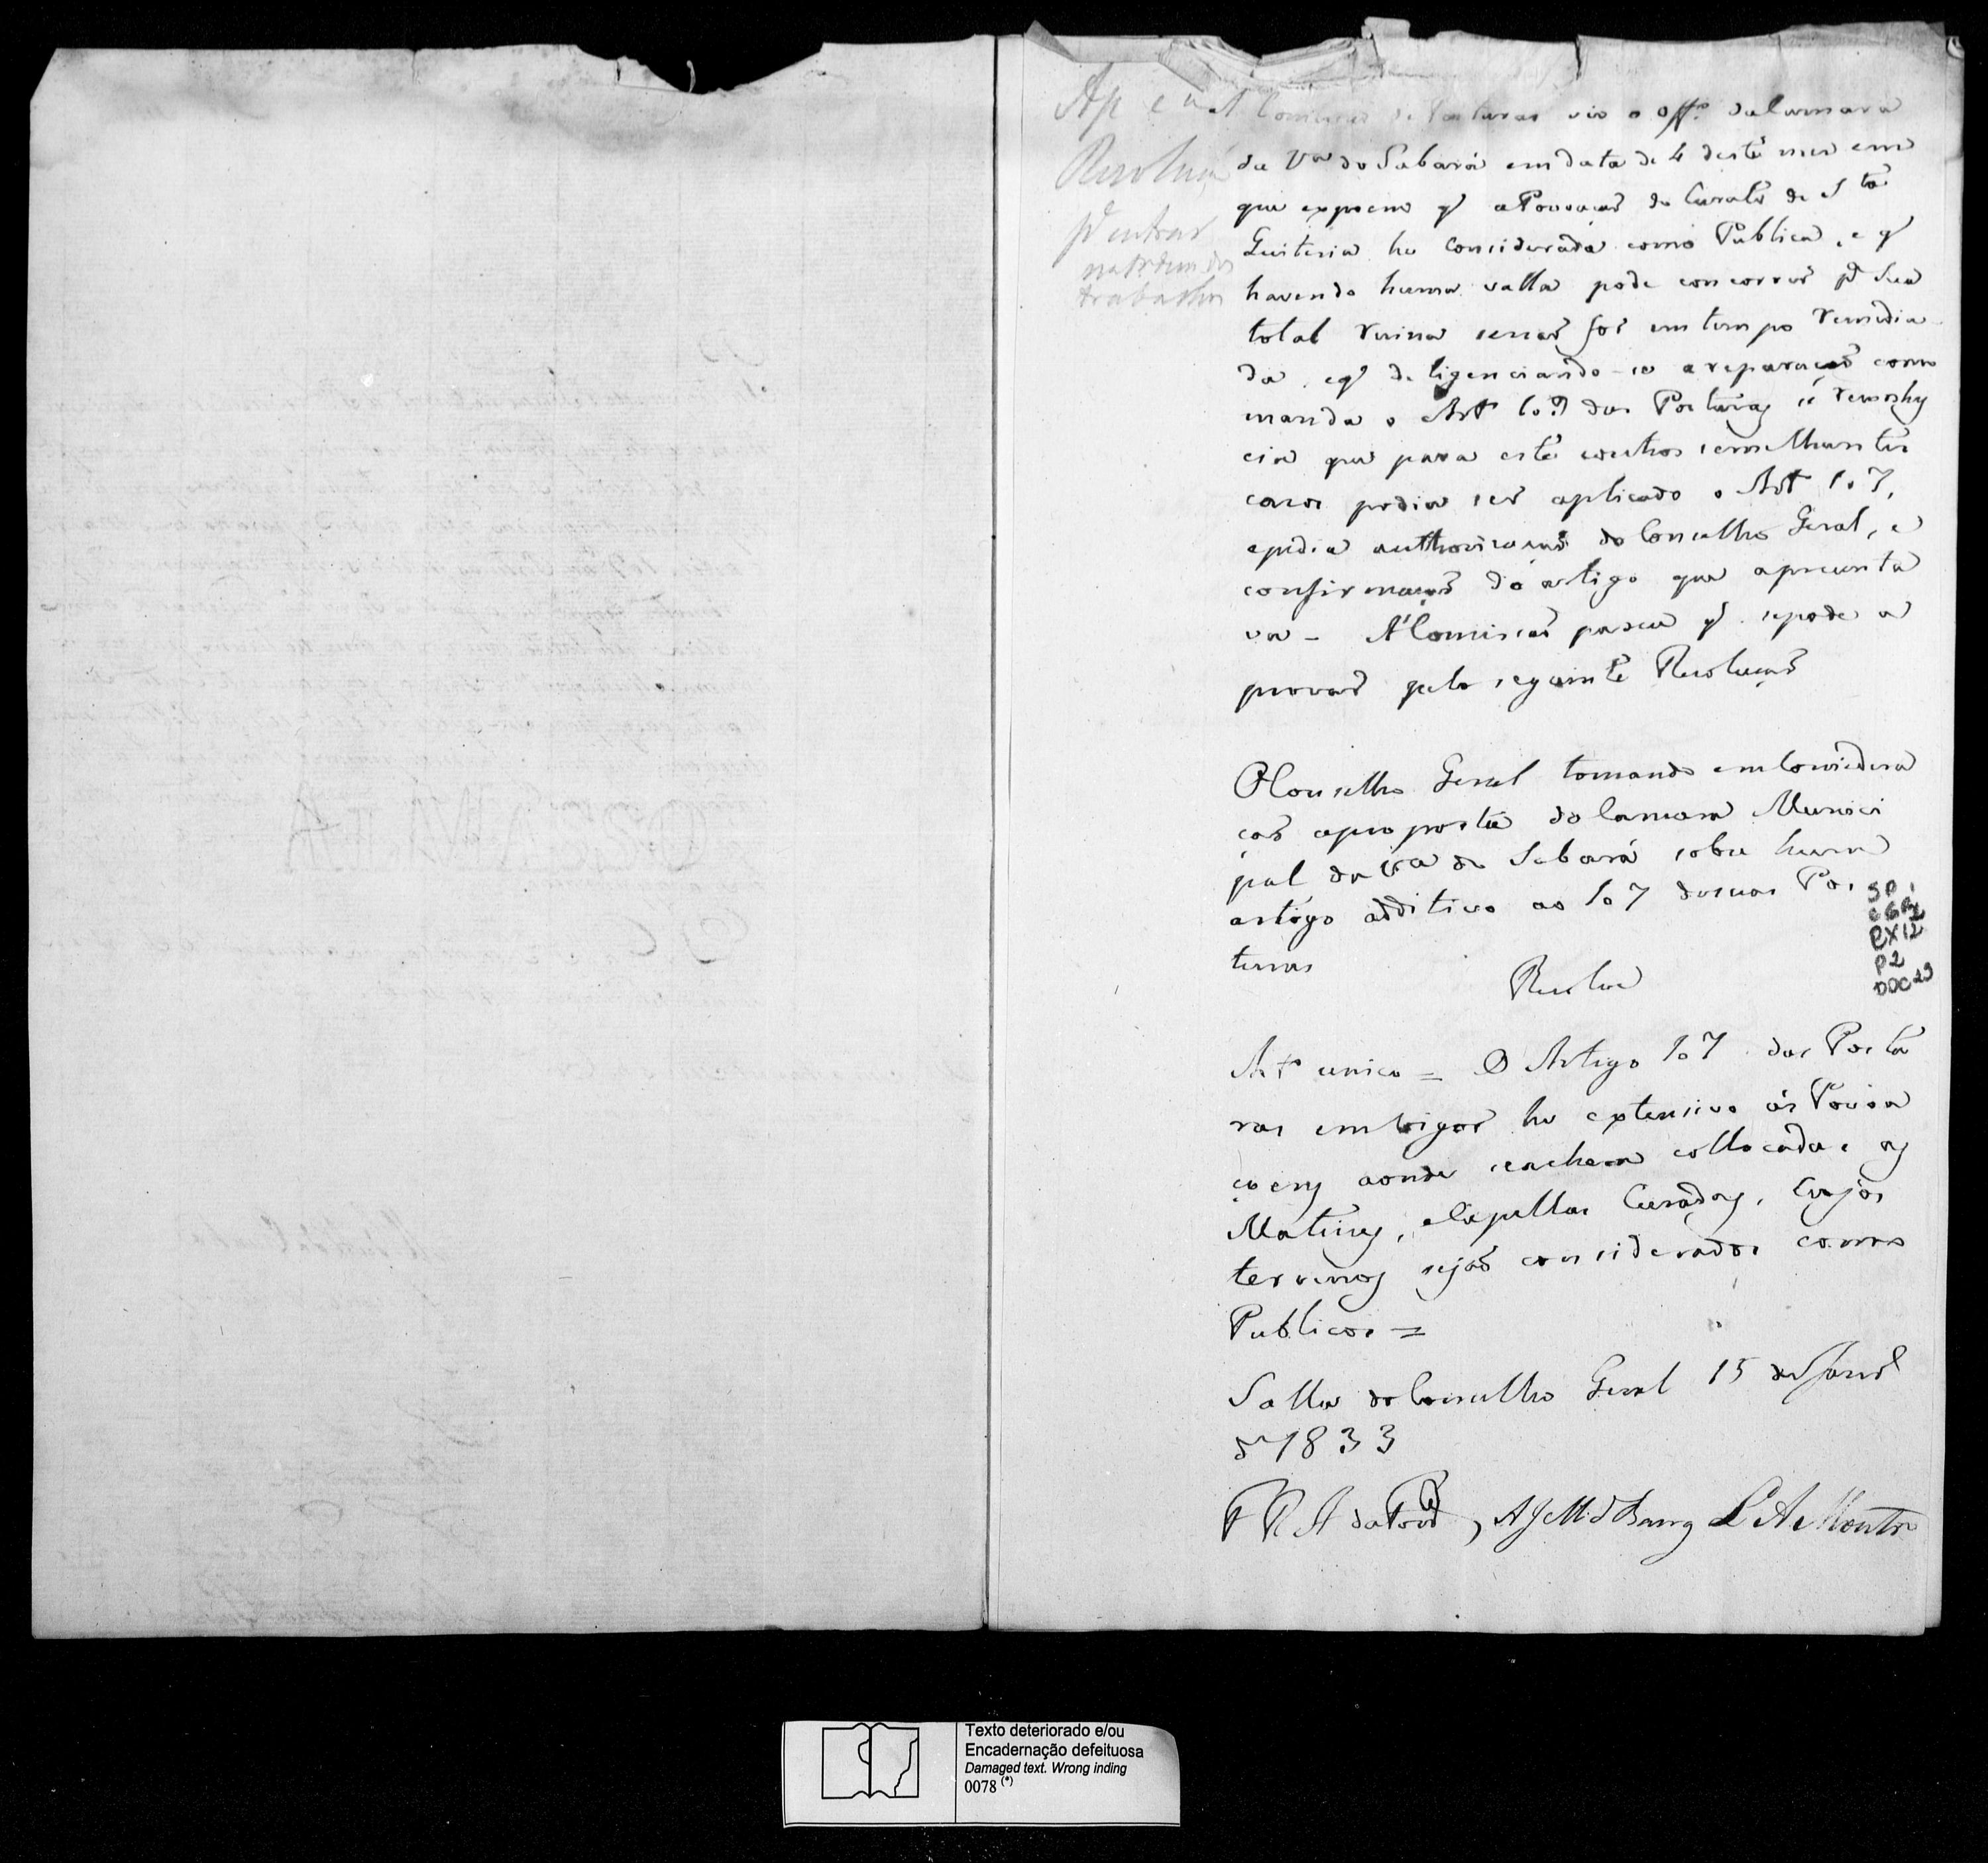 Resoluçaõ
pª entrar
na Ordem dos
trabalhos
A Comissaõ de Posturas vio o offº daCamara
da Vª do Sabará em data de 4 deste mes em
que expoem q' aPovoaçaõ do Curato de S ta
Quiteria he considerada como Publica, e q'
havendo huma valla pode concorrer pª sua
total ruina senaõ for em tempo remedia
da, eq' deligenciando-se areparaçaõ como
manda o Art 107 das Posturas
cia que para este eoutros semelhantes
casos podia ser aplicado o Art 107,
epedia authorisaçaõ do Conselho Geral, e
confirmaçaõ do artigo que apresenta
va - A Comissaõ parece q' sepode a
provar pela seguinte Resoluçaõ
OConselho Geral tomando emConsidera
çaõ aproposta da Camara Munici
pal da Vª do Sabará sobre hum
artigo additivo ao 107 desuas Pos
turas
Resolve
Art unico = O Artigo 107 das Postu
ras emvigor he extensivo ás Povoa
çoens aonde seachem collocadas as
Matrizes, eCapellas Curadas, cujos
terrenos sejaõ considerados como
Publicos =
Salla do Conselho Geral 15 de Janrº
de 1833
SP
CGP1
CX12
P2
DOC 29
Texto deteriorado e/ou
Encadernação defeituosa
Damaged text. Wrong inding
0078 (*)